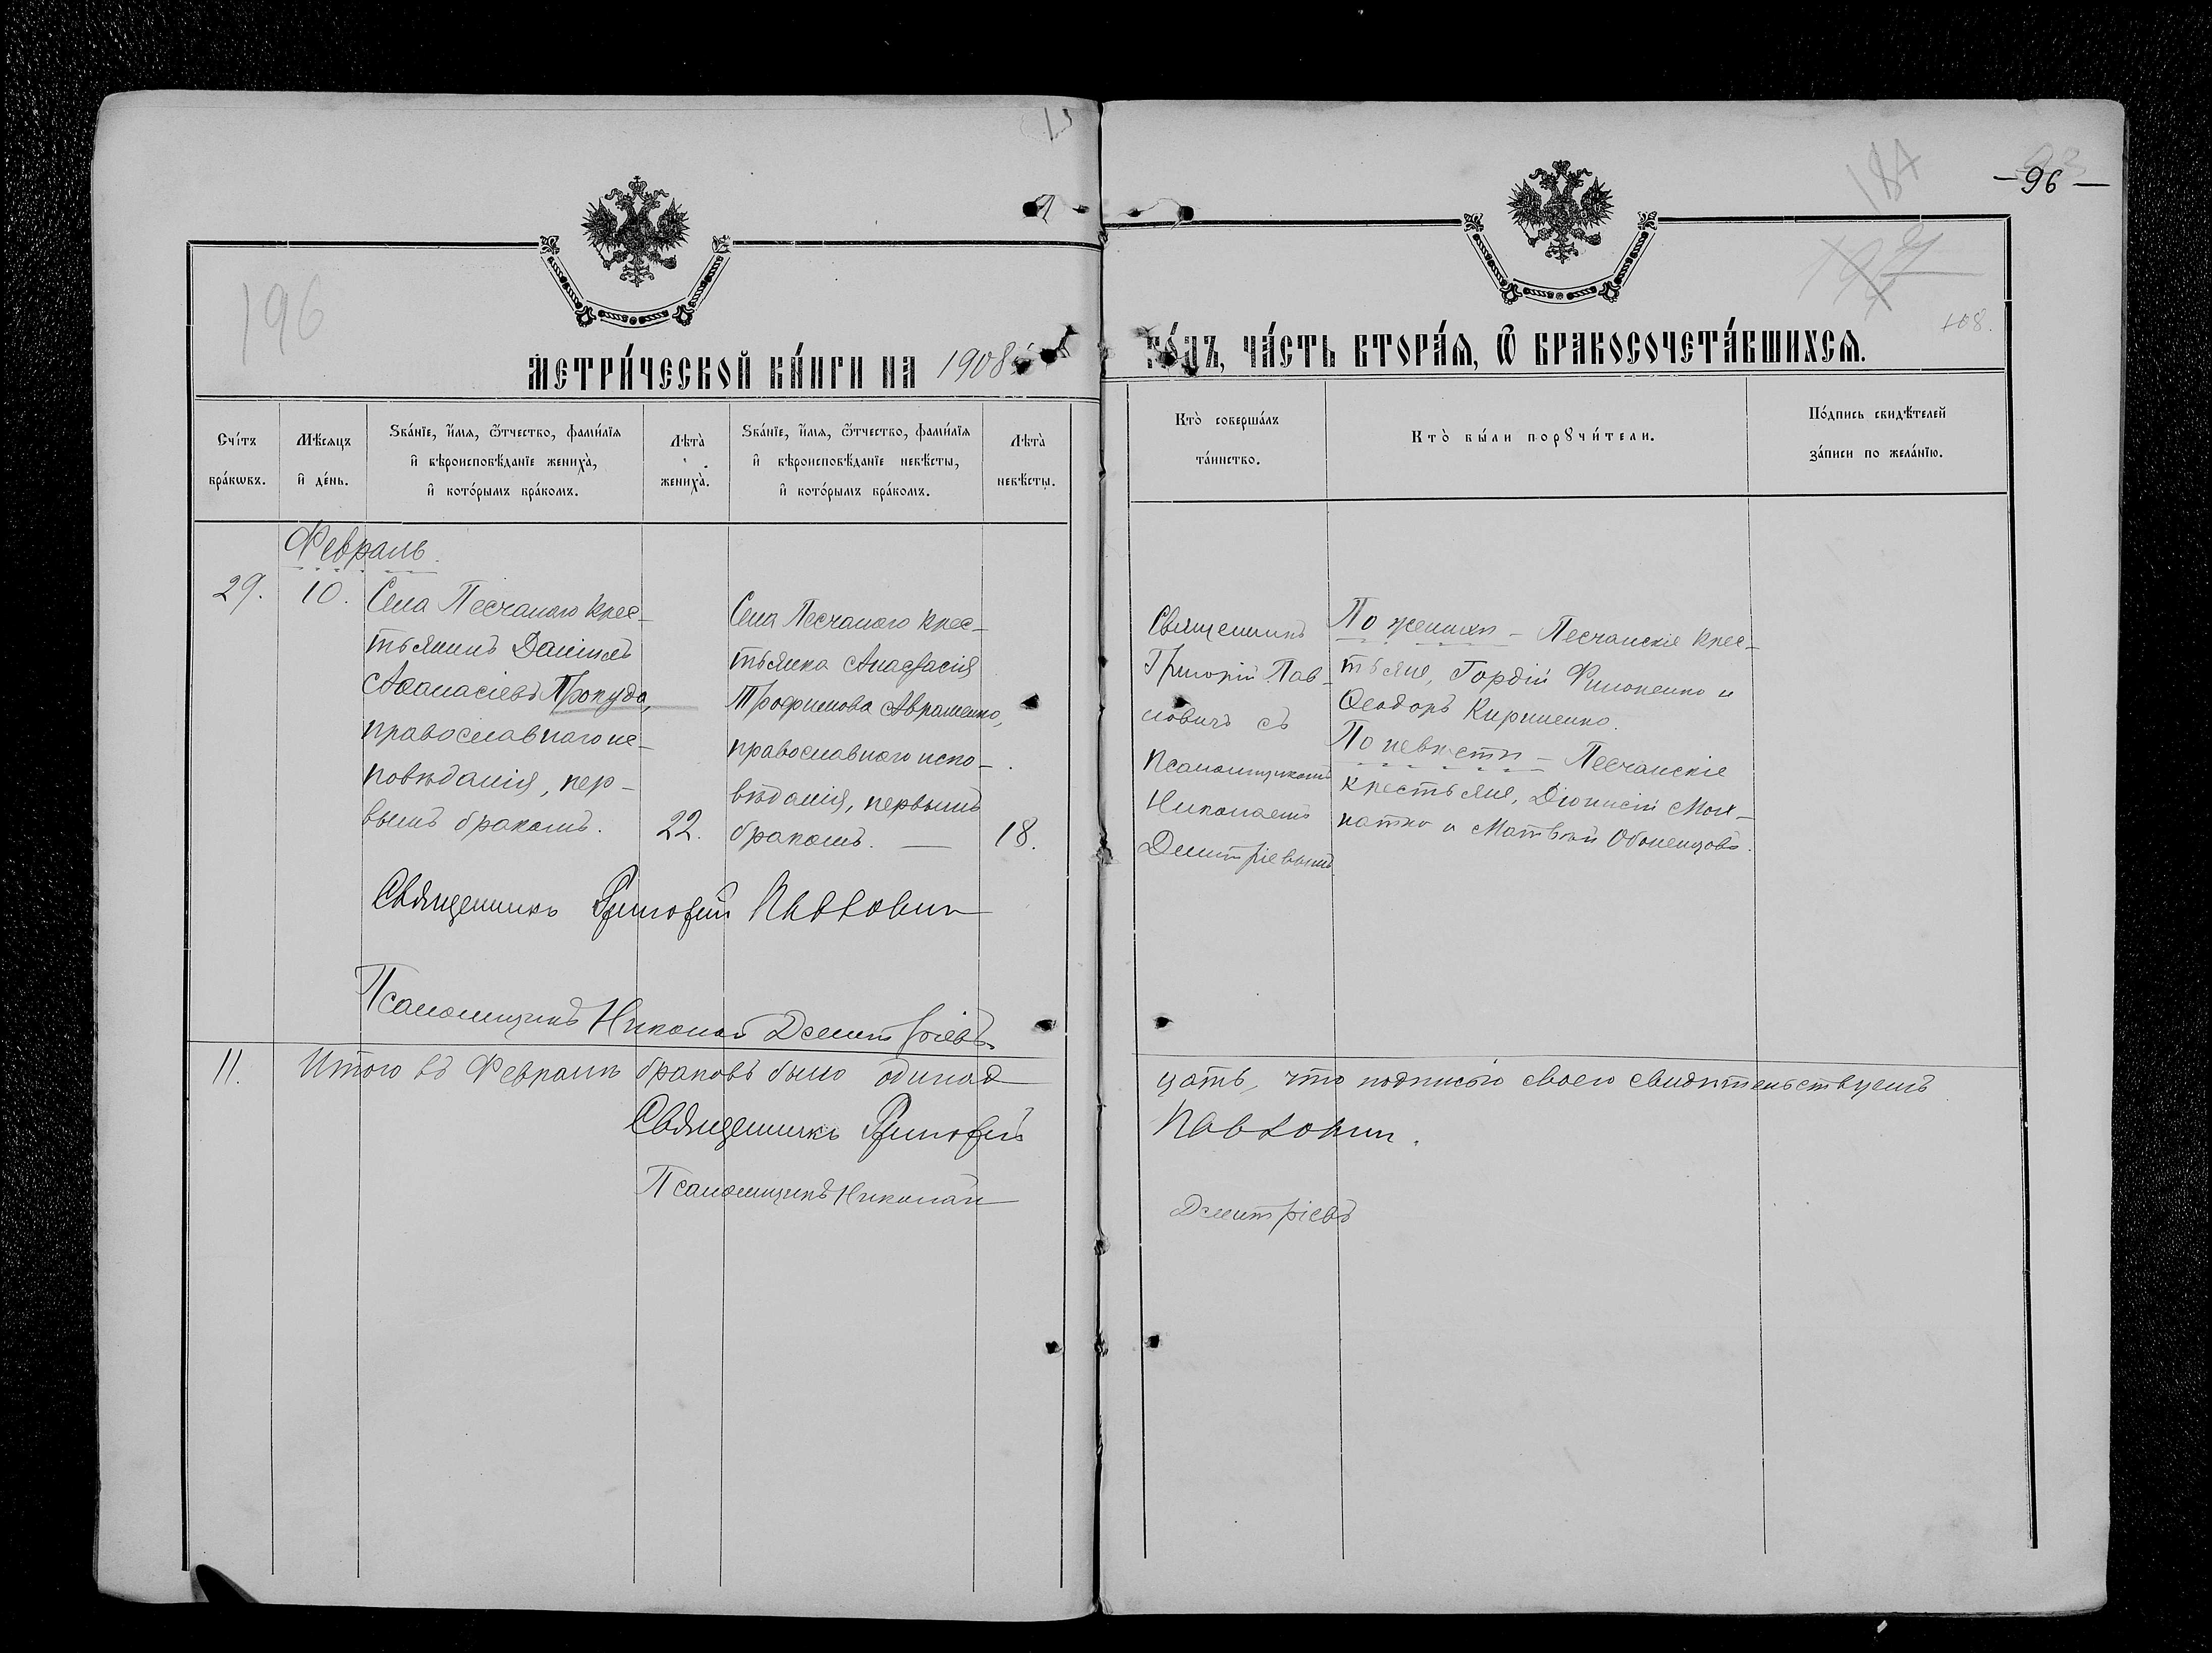 196
187
96
108.
МЕТРИ́ЧЕСКОЙ КНИ́ГИ НА 1908й
ГО́ДЪ, ЧА́СТЬ ВТОРА́Я, Ѿ БРАКОСОЧЕТА́ВШИХСЯ.
Сче́тъ бра́кѡвъ.
Мѣ́сяцъ и҆ де́нь.
Ѕва́нїе, и҆́мя, ѻ҆́тчество, фами́лїя
и҆ вѣроисповѣ́данїе жениха̀,
и҆ кото́рымъ бра́комъ.
Лѣта̀ жениха̀.
Ѕва́нїе, и҆́мя, ѻ҆́тчество, фами́лїя
и҆ вѣроисповѣ́данїе невѣ́сты,
и҆ кото́рымъ бра́комъ.
Лѣта̀ невѣ́сты.
Кто̀ соверша́лъ та́инство.
Кто̀ бы́ли порꙋчи́тели.
По́дпись свидѣ́телей за́писи по жела́нїю.
Февраль.
29.
10.
Села Песчаного крес-
тьянинъ Даніилъ
Аѳанасіевъ Прокуда,
православнаго ис-
повѣданія, пер-
вымъ бракомъ.
22.
Села Песчаного крес-
тьянка Анастасія
Трофимова Авраменко,
православнаго испо-
вѣданія, первымъ
бракомъ. —
18.
Священникъ
Григорій Пав-
ловичъ съ
псаломщикомъ
Николаемъ
Димитріевымъ
По женихѣ – Песчанскіе крес-
тьяне, Гордій Филоненко и
Ѳеодоръ Кириченко.
По невѣстѣ – Песчанскіе
крестьяне, Діонисій
и Матвѣй
Священникъ Григорій Павловичъ
Псаломщикъ Николай Димитріевъ
11.
Итого въ Февралѣ браковъ было одинад
цать, что подписью своею свидѣтельствуемъ
Священникъ Григорій
Павловичъ.
Псаломщикъ Николай
Димитріевъ